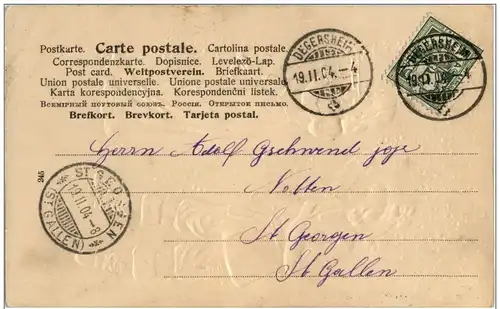 Postkarte. Carte postale. Cartolina postale
Correspondenzkarte. Dopisnice. Levelező-Lap.
Post card. Weltpostverein. Briefkaart.
Union postale universelle. Unione postale universale
Karta korespondencyjna. Korespondenční listek.
Всемірный почтовый союзъ. Россія. Открытое письмо.
Brefkort. Brevkort. Tarjeta postal.
DEGERSHEIM
19.II.04.–4
DEGERSHEIM
19.II.04.–4
Herrn Adolf Gschwend
Notten
St Georgen
St Gallen
245
ST. GEORGEN
19.II.04.–8
(ST. GALLEN)